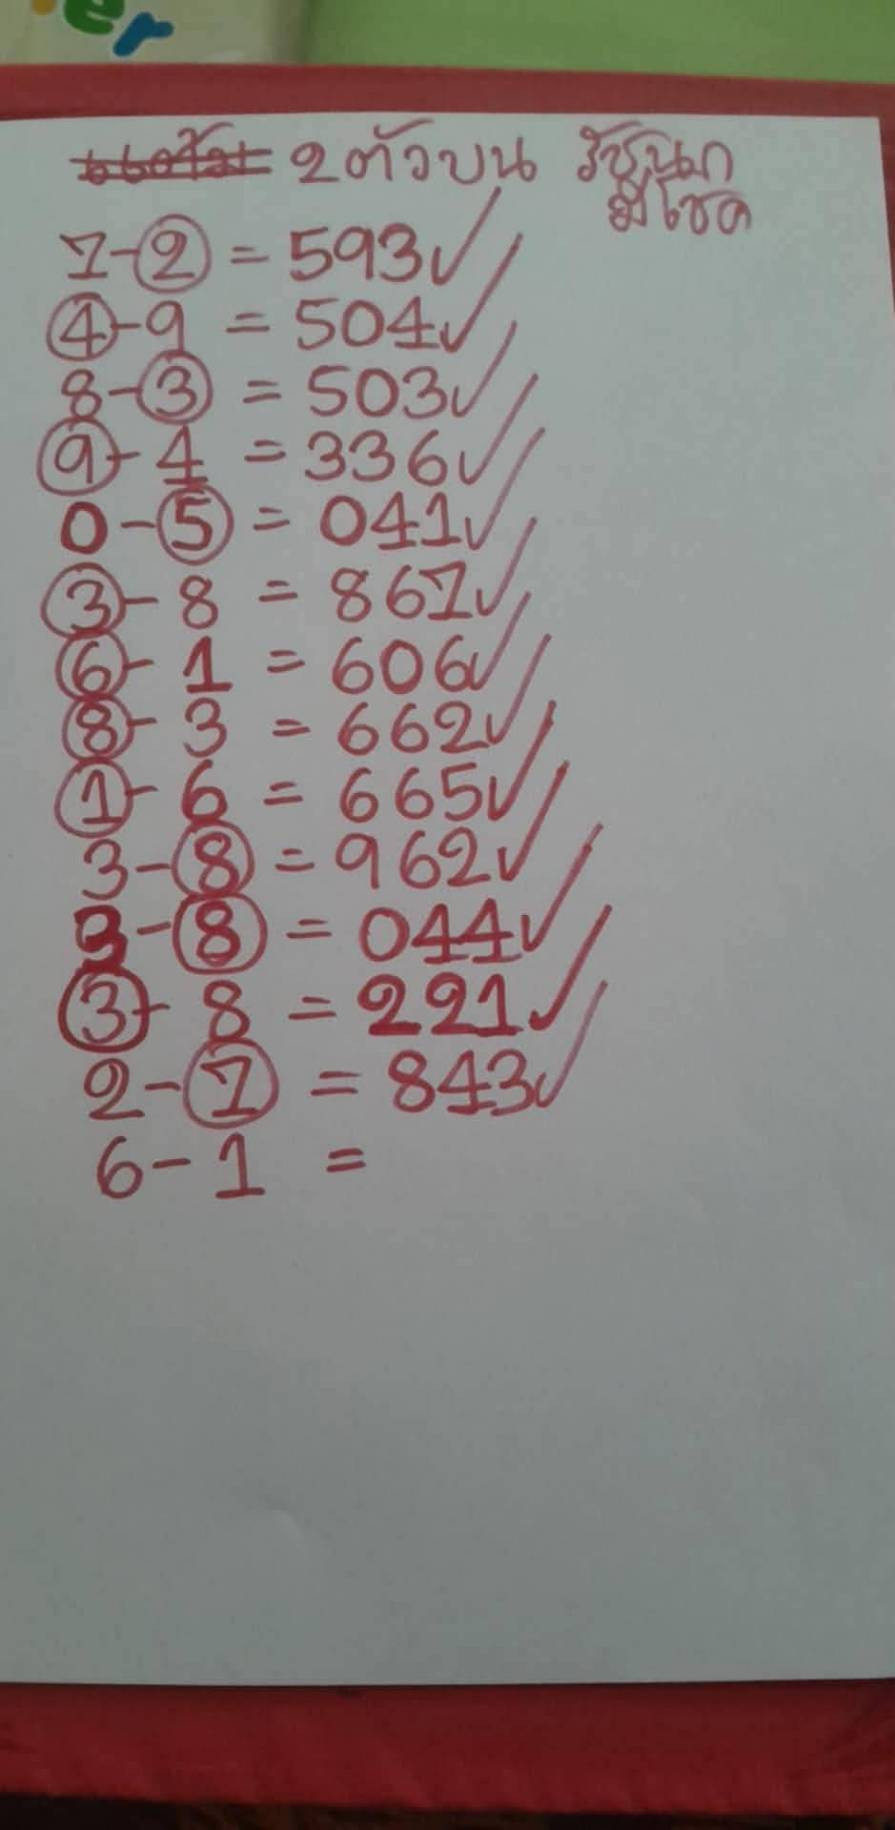 er
2ตัวบน
มีโชค
7-2 = 593✓
4-9 = 504✓
8-3 = 503✓
9-4 = 336✓
0-5 = 041✓
3-8 = 867✓
6-1 = 606✓
8-3 = 662✓
1-6 = 665✓
3-8 = 962✓
3-8 = 044✓
3-8 = 221✓
2-7 = 843✓
6-1 =